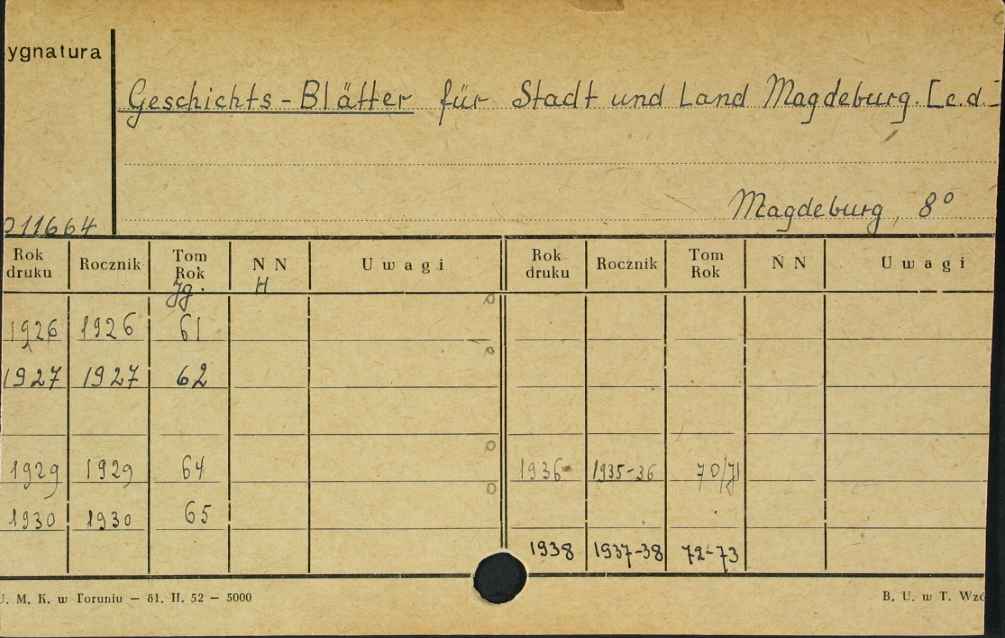 ygnatura
Geschichts-Blätter für Stadt und Land Magdeburg. [c.d.
Magdeburg, 8°
011664
Rok druku Rocznik Tom Rok N N U w a g i Rok druku Rocznik Tom Rok N N U w a g i
Jg. H
1926 1926 61
1927 1927 62
1929 1929 64 1936 1935-36 70/71
1930 1930 65
1938 1937-38 72-73
U. M. K. w Toruniu — 61. II. 52 — 5000
B. U. w T. Wzó